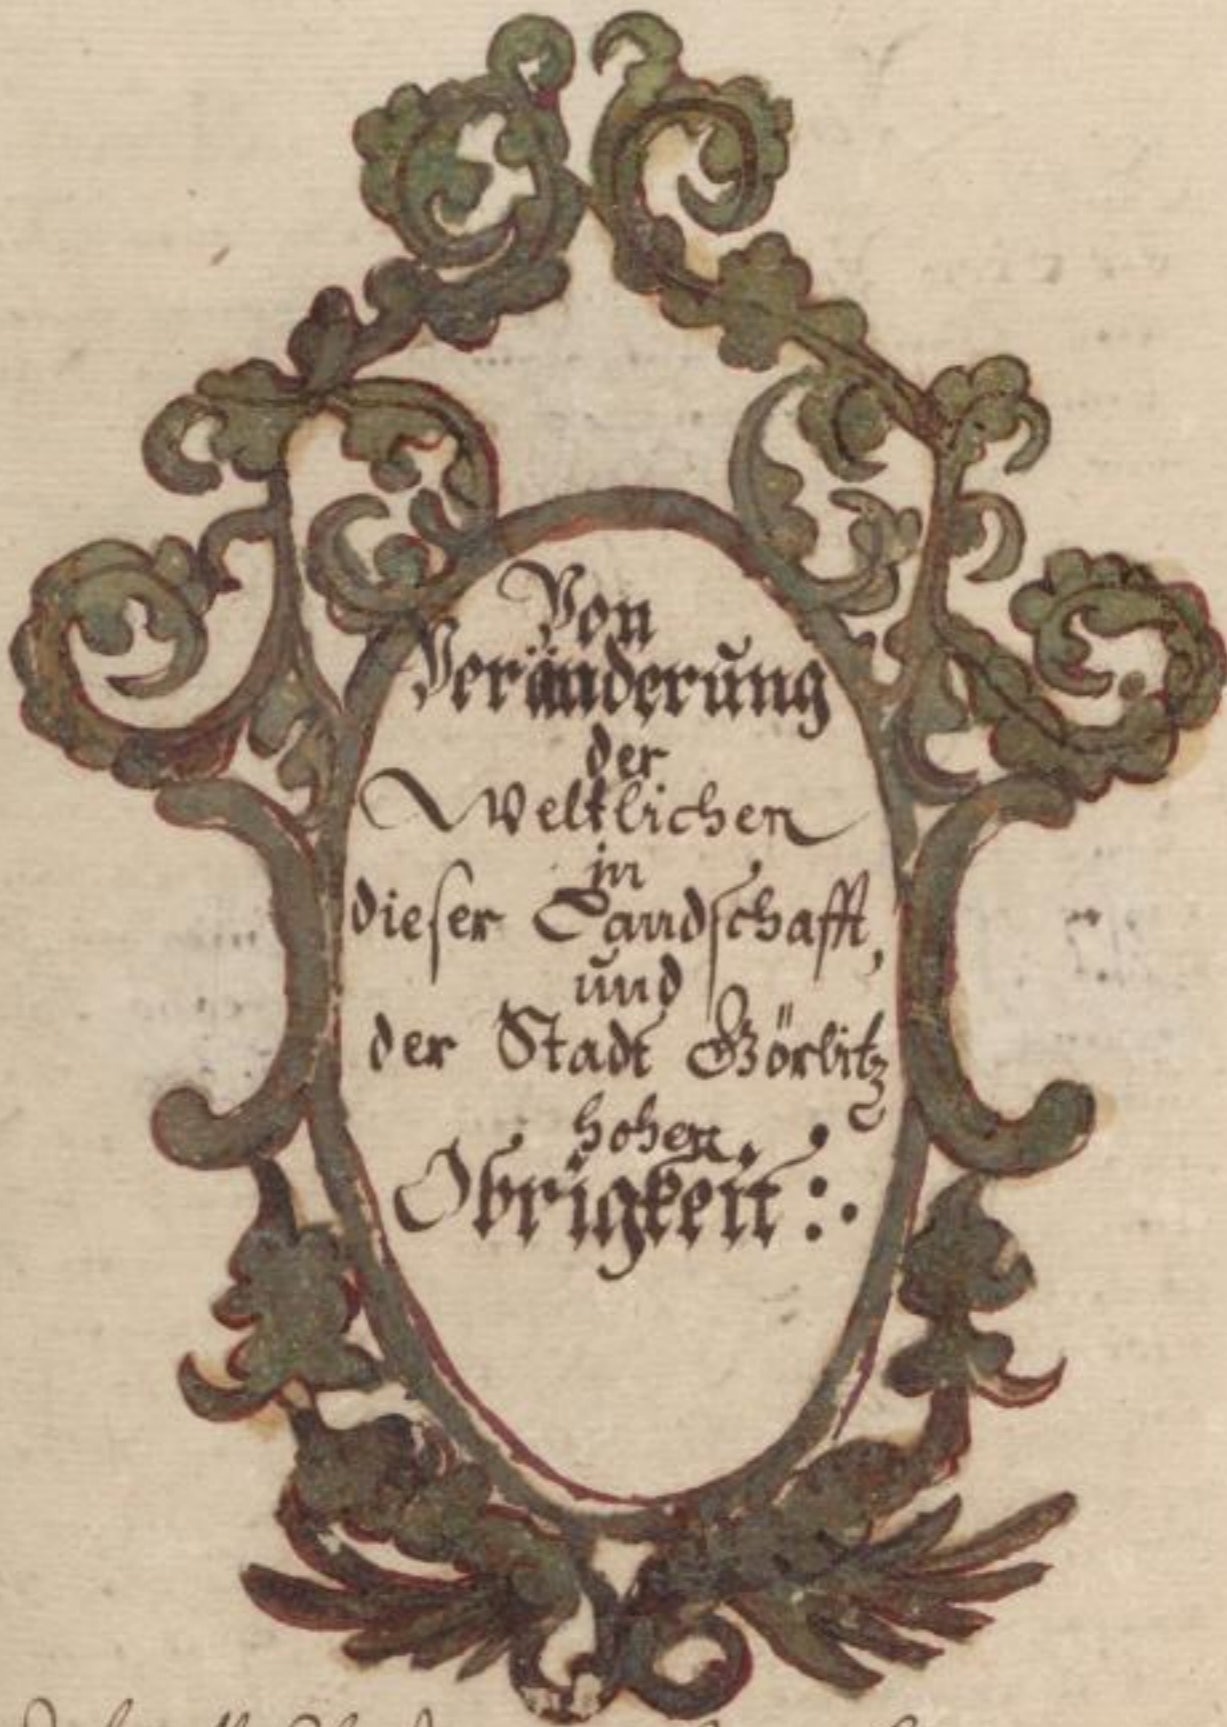 Von
Veränderung
der
Weltlichen
in
dieser Landschafft,
und
der Stadt Görlitz
hohen
Obrigkeit:.